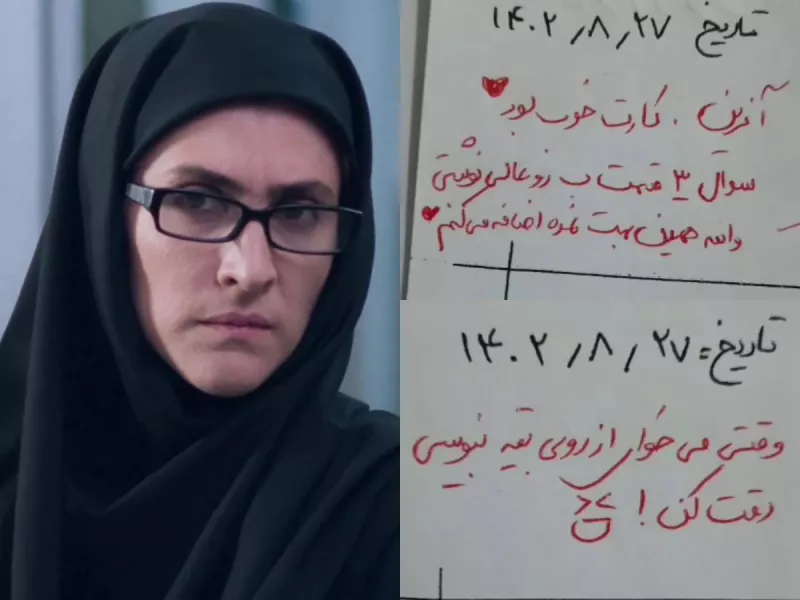 تاریخ ۱۴۰۲/۸/۲۷
آفرین . کارت خوب بود
سوال ۳ قسمت ب رو عالی نوشتی
واسه همین بهت نمره اضافه می‌کنم
تاریخ= ۱۴۰۲/۸/۲۷
وقتی می خوای از روی بقیه بنویسی
دقت کن !